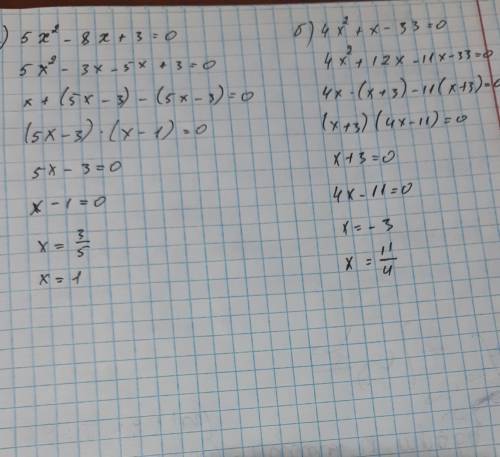 ) 5x² - 8x + 3 = 0
5x² - 3x - 5x + 3 = 0
x + (5x - 3) - (5x - 3) = 0
(5x - 3) · (x - 1) = 0
5x - 3 = 0
x - 1 = 0
x = 3/5
x = 1
б) 4x² + x - 33 = 0
4x² + 12x - 11x - 33 = 0
4x - (x + 3) - 11(x + 3) = 0
(x + 3)(4x - 11) = 0
x + 3 = 0
4x - 11 = 0
x = - 3
x = 11/4